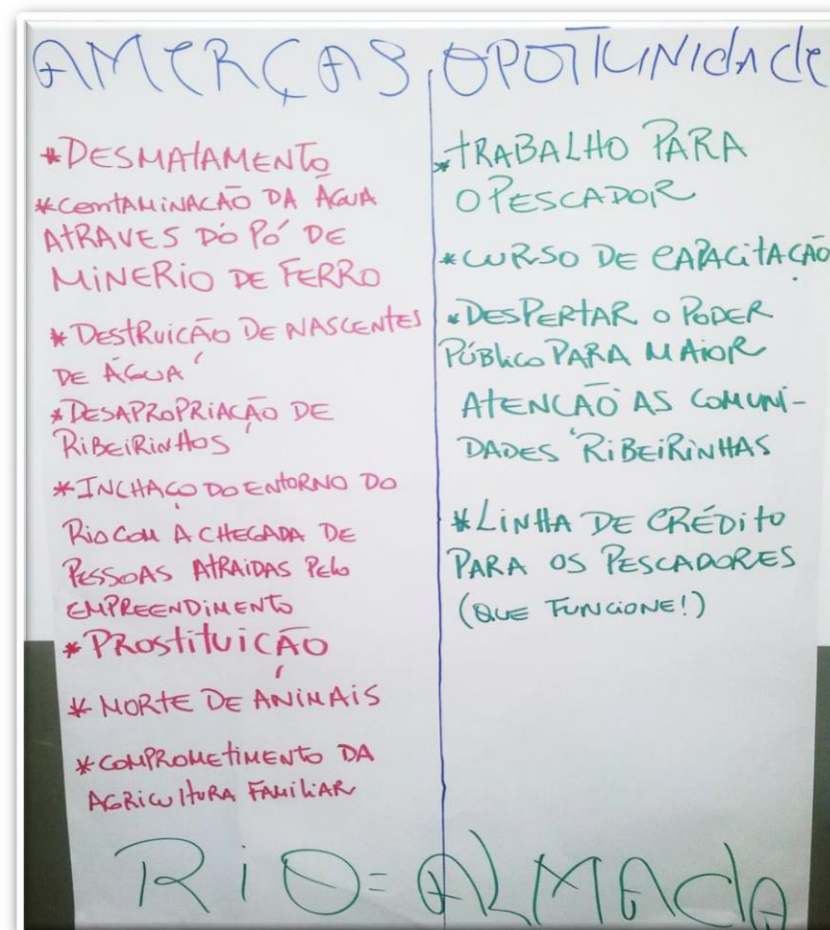 AMERÇAS OPOTTUNIdAde
*DESMATAMENTO
*CONTAMINAÇÃO DA ÁGUA
ATRAVES DO PÓ DE
MINERIO DE FERRO
*DESTRUIÇÃO DE NASCENTES
DE ÁGUA
*DESAPROPRIAÇÃO DE
RIBEIRINHOS
*INCHAÇO DO ENTORNO DO
RIO COM A CHEGADA DE
PESSOAS ATRAIDAS PELO
EMPREENDIMENTO
*PROSTITUIÇÃO
*MORTE DE ANIMAIS
*COMPROMETIMENTO DA
AGRICULTURA FAMILIAR
*TRABALHO PARA
O PESCADOR
*CURSO DE CAPACITAÇÃO
*DESPERTAR O PODER
PÚBLICO PARA MAIOR
ATENÇÃO AS COMUNI-
DADES RIBEIRINHAS
*LINHA DE CRÉDITO
PARA OS PESCADORES
(QUE FUNCIONE!)
RiO=ALMAdA